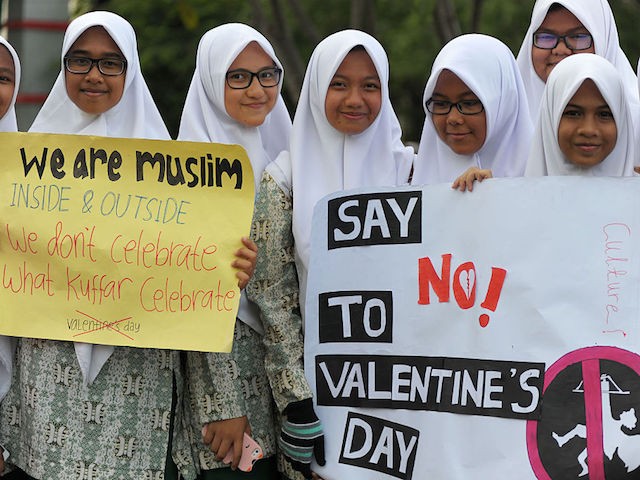 We are muslim
INSIDE & OUTSIDE
We don't celebrate
What Kuffar Celebrate
valentine's day
SAY
NO!
TO
VALENTINE'S
DAY
Culture!